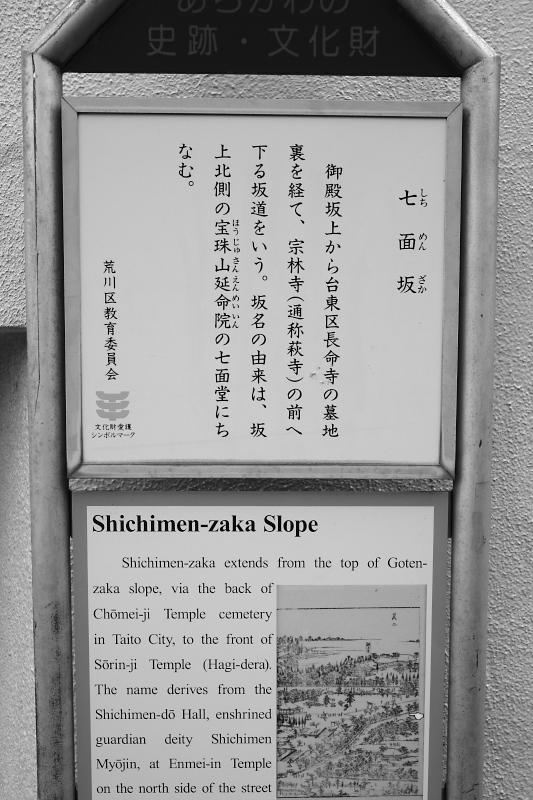 あらかわの
史跡・文化財
七面坂
しちめんざか
御殿坂上から台東区長命寺の墓地
裏を経て、宗林寺(通称萩寺)の前へ
下る坂道をいう。坂名の由来は、坂
上北側の宝珠山延命院の七面堂にち
ほうじゅさんえんめいいん
なむ。
荒川区教育委員会
文化財愛護
シンボルマーク
Shichimen-zaka Slope
Shichimen-zaka extends from the top of Goten-
zaka slope, via the back of
Chōmei-ji Temple cemetery
in Taito City, to the front of
Sōrin-ji Temple (Hagi-dera).
The name derives from the
Shichimen-dō Hall, enshrined
guardian deity Shichimen
Myōjin, at Enmei-in Temple
on the north side of the street